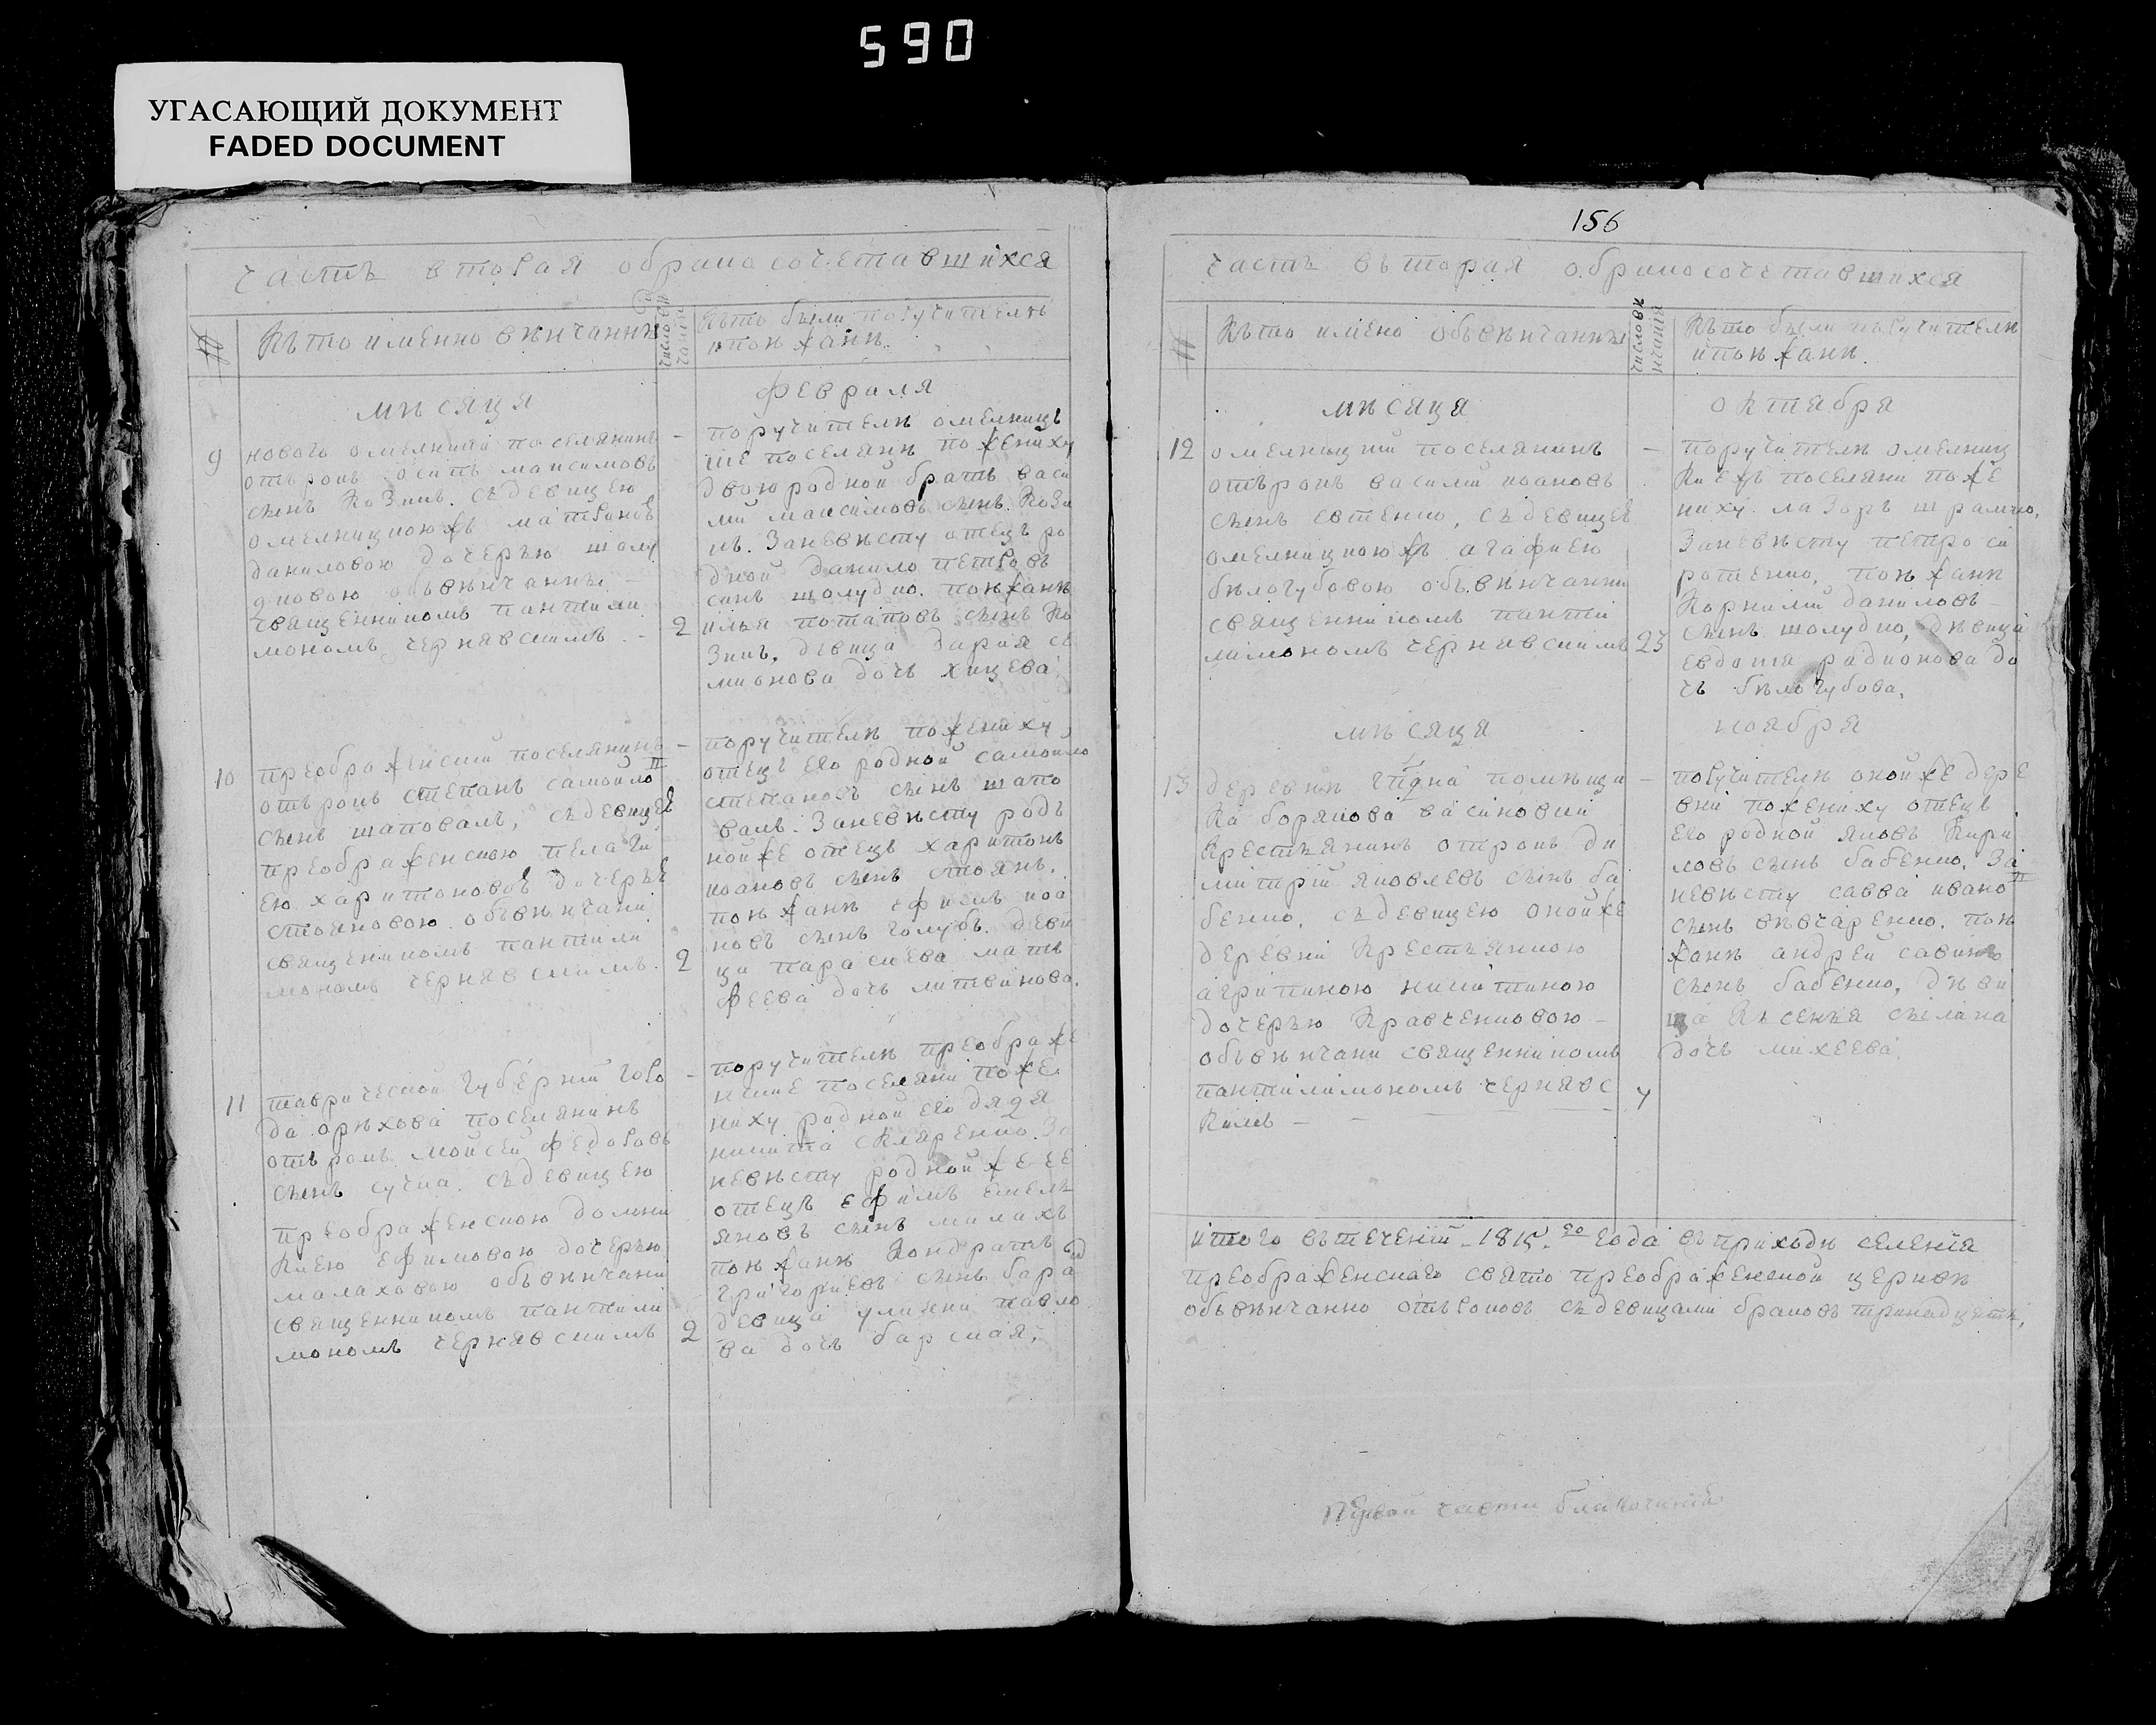 590
УГАСАЮЩИЙ ДОКУМЕНТ
FADED DOCUMENT
часть вторая обракосочетавшихся
№
Кьто именно венчанны
число вен
чания
Кьто были поручители
ипонѣжанѣ
мѣсяца
февраля
9
нового омелника поселянинъ
отърокъ осипъ максимовъ
сынъ Козикъ. съдевицею
омелницкоюжъ матроною
даниловою дочерью шолу
дковою объвѣнчанны –
священникомъ пантили
мономъ чернявскимъ –
2
поручители омелницъ
кие поселянѣ пожениху
двоюродной братъ васи
лий максимовъ сынъ Кози
къ. Заневѣсту отецъ ро
дной данило петровъ
синъ шолудко. понѣжанѣ
илья потаповъ сынъ Ко
зикъ. девица дария се
мионова дочь хицева.
10
преображенский поселянинъ
отърокъ степанъ самойло
сынъ шаповалъ, съдевицею
преображенскою пелаги
ею харитоновою дочерью
стояновою объвѣнчани
священикомъ пантили
мономъ чернявскимъ.
2
поручителѣ пожениху
отецъ его родной самойло
степановъ сынъ шапо
валъ. Заневѣсту родъ
нойже отецъ харитонъ
ивановъ сынъ стоянъ.
понѣжанѣ ефимъ ива
новъ сынъ голубъ. деви
ца параскева матъ
феева дочь литвинова.
11
таврической губернии горо
да орѣхова поселянинъ
отърокъ мойсей федоровъ
сынъ сучка. съдевицею
преображенскою домни
Киею ефимовою дочерью
малаховою объвѣнчани
священникомъ пантили
мономъ чернявскимъ
2
поручителѣ преображе
нские поселяни поже
ниху родной его дядя
никита скляренко. За
невѣсту роднойже ее
отецъ ефимъ емелъ
яновъ сынъ малахъ
понѣжанѣ Кондратъ
григориевъ сынъ бара
девица улияни павло
ва дочь барская.
156
часть въторая обракосочетавшихся
№
Кьто имено объвѣнчанны
число вѣ
нчания
Кьто были поручителѣ
ипонѣжанѣ.
мѣсяца
октабря
12
омелницкий поселянинъ
отърокъ василий ивановъ
сынъ евтенко, съдевицею
омелницкоюжъ агафиею
бѣлогубовою объвѣнчанни
священникомъ панти
лимономъ чернявскимъ
23
поручителѣ омелниц
Киежъ поселяни поже
ниху лазоръ шрамко,
Заневѣсту петро си
ротенко, понѣжанѣ
Корнилий даниловъ
сынъ шолудко, дѣвица
евдокия радионова до
чь бѣлогубова,
мѣсяца
ноября
13
деревнѣ помѣщи
Ка борякова васиновки
Крестьянинъ отрокъ ди
митрий яковлевъ сынъ ба
бенко, съдевицею онойже
деревни Крестьянкою
агрипиною никитиною
дочерью Кравченковою –
объвѣнчани священникомъ
пантилимономъ чернявс
Кимъ –
4
поручителѣ онойже дере
вни пожениху отецъ
его родной яковъ Кири
ловъ сынъ бабенко, За
невѣсту савва ивано
сынъ вѣвчаренко, понѣ
жанѣ андрей савино
сынъ бабенко, дѣви
ца Ксения
дочь михеева.
итого вътечении 1815.го года въприходѣ селения
преображенскаго свято преображенской церквѣ
обьвѣнчанно отъроковъ съдевицами браковъ тринадцать,
Первой части благочинния